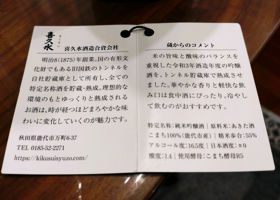 喜久水
喜久水酒造合資会社
明治8(1875)年創業。国の有形文
化財でもある旧国鉄のトンネルを
自社貯蔵庫として所有し、全ての
特定名称酒を貯蔵・熟成。理想的な
環境のもとゆっくりと熟成される
お酒は、時が経つほどまろやかな味
わいに変化していくのが魅力です。
秋田県能代市万町6-37
TEL 0185-52-2271
https://kikusuisyuzo.com/
蔵からのコメント
米の旨味と酸味のバランスを
重視した令和3年酒造年度の吟醸
酒を、トンネル貯蔵庫で熟成させ
ました。華やかな香りと軽快な飲
み口は食中酒にぴったり。冷やし
て飲むのがおすすめです。
特定名称:純米吟醸酒|原料米:あきた酒
こまち100%(能代市産)|精米歩合:55%
アルコール度:16.5度|日本酒度:
酸度:1.4|使用酵母:こまち酵母R5